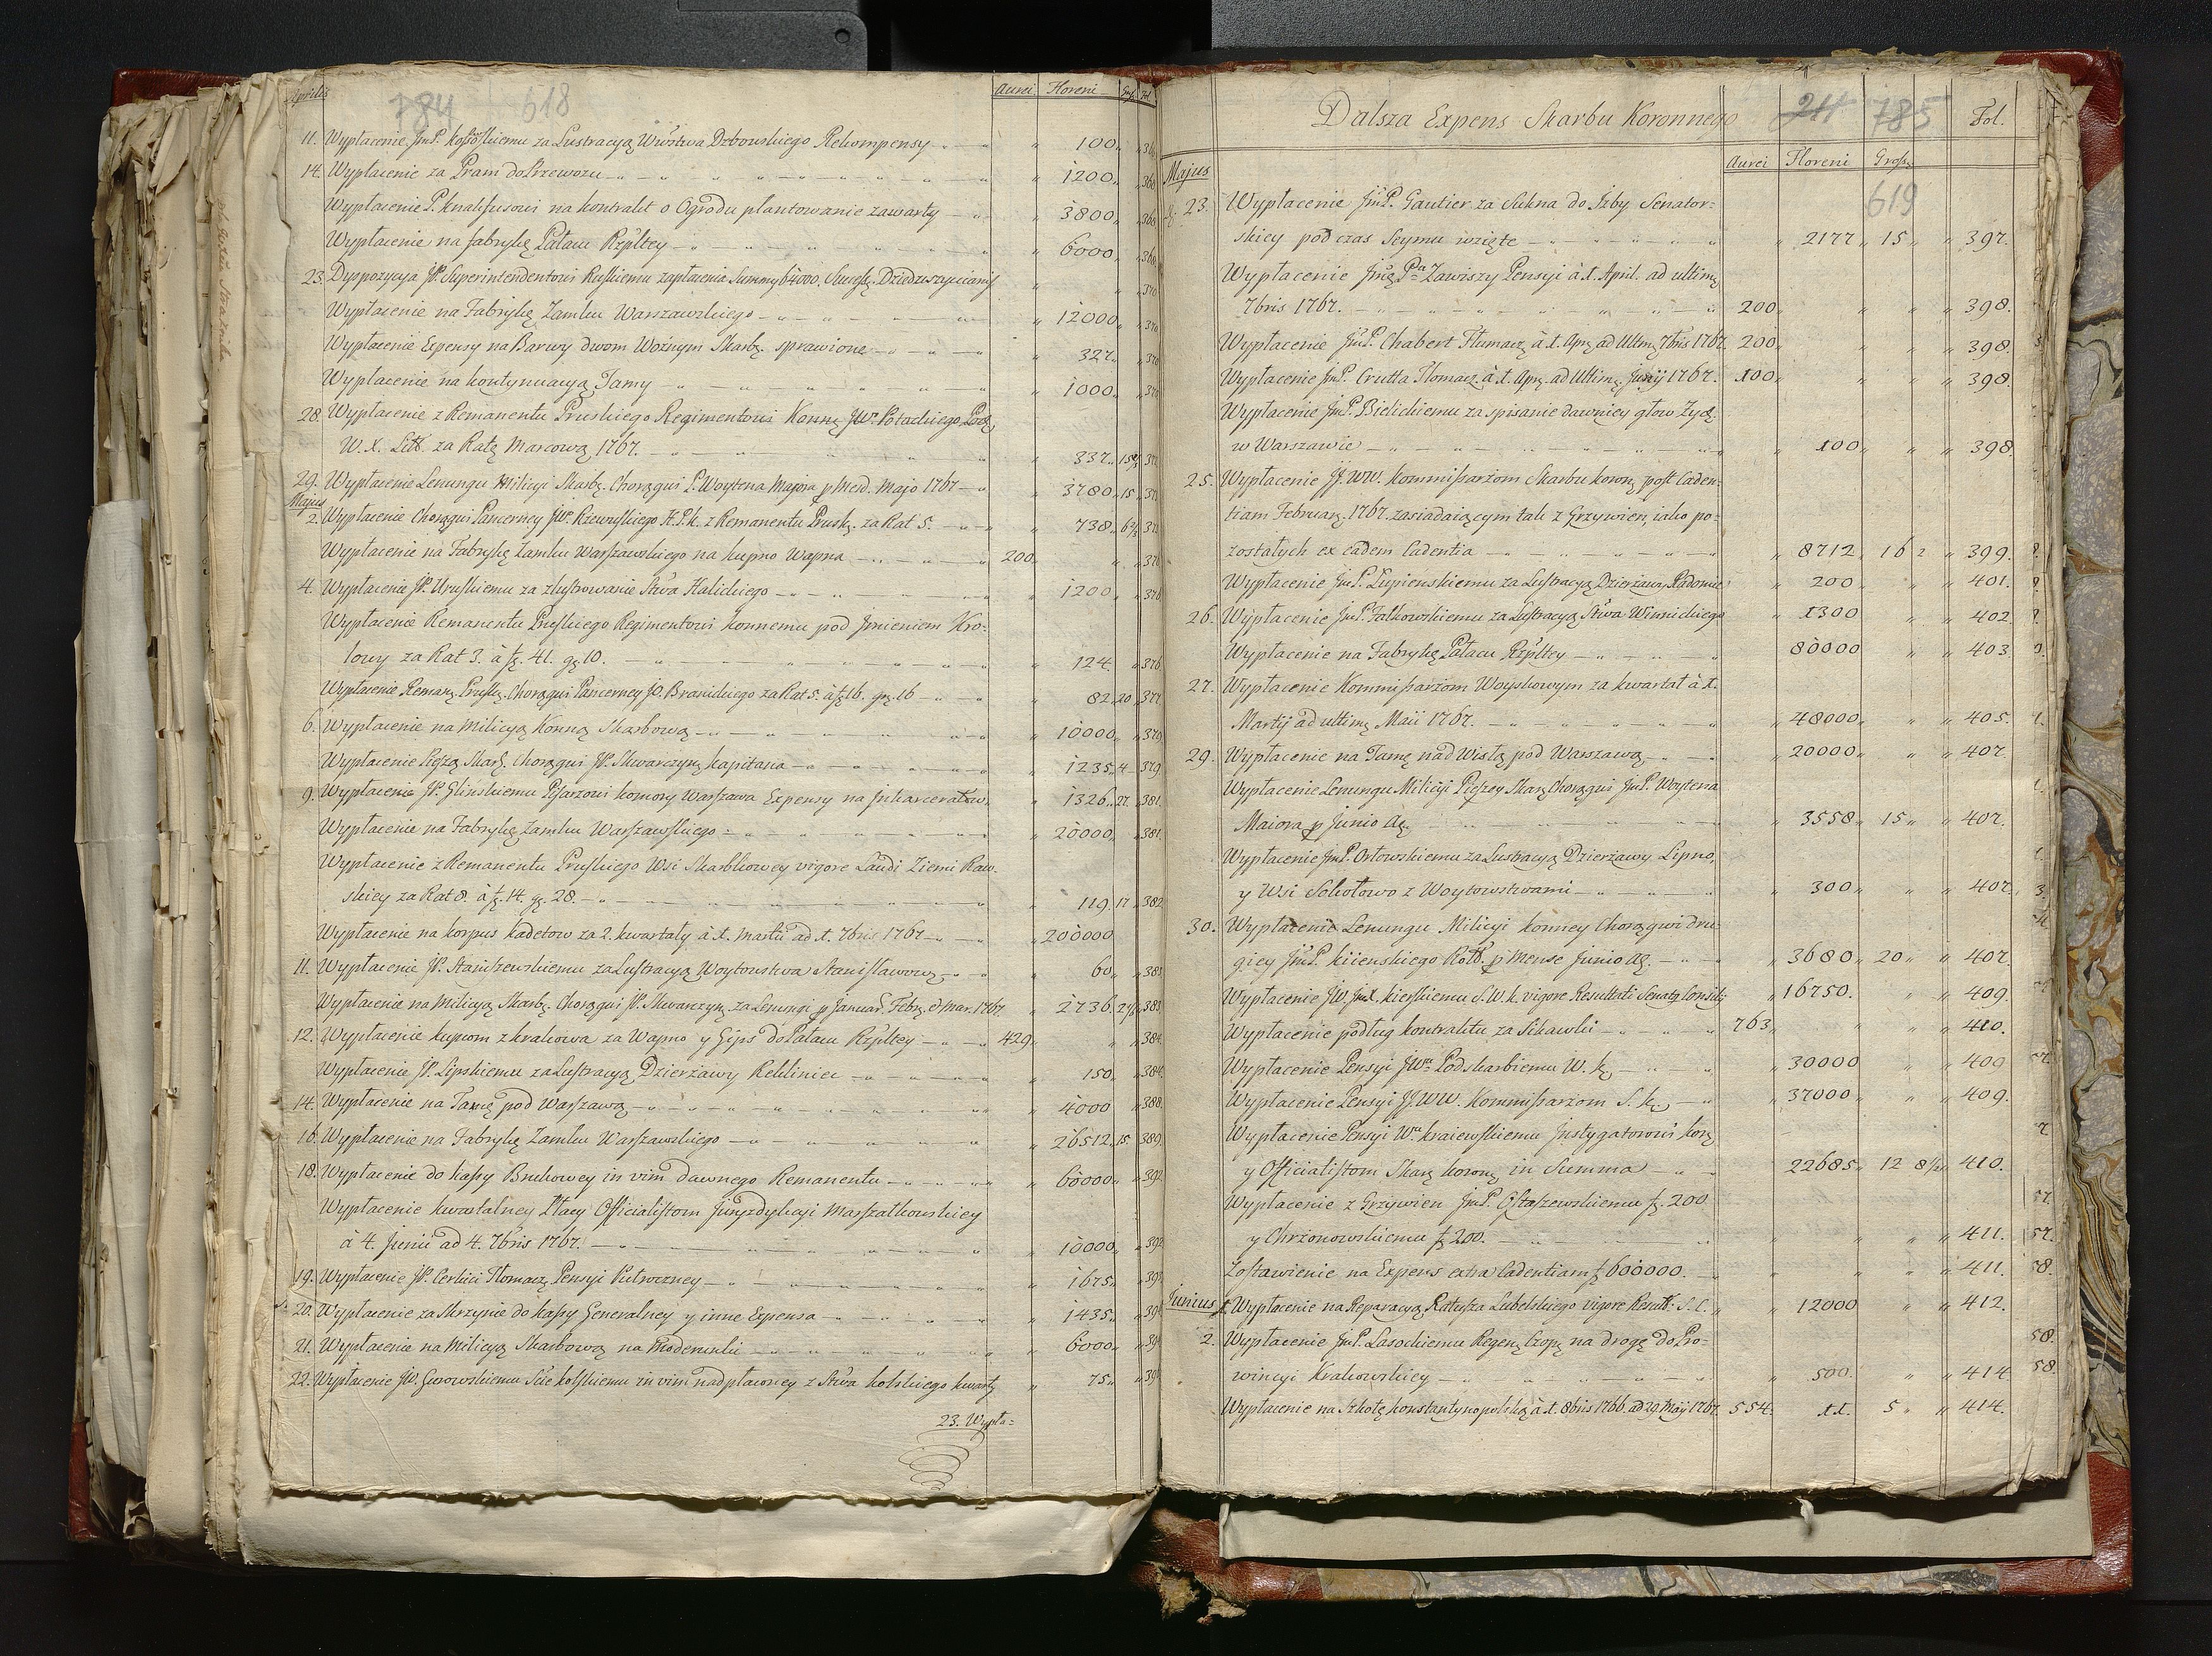 Aprilis 784 618 Aurei Floreni Gros. Fol.
11. Wypłacenie JmP. Kossowskiemu za Lustracyą Wwstwa Dzbowskiego Rekompensy 100
14. Wypłacenie za Pram do Przewozu 1200 368
Wypłacenie P. Knakfusowi na kontrakt o Ogrodu plantowanie zawarty 3800 368
Wypłacenie na fabrykę Pałacu Rzpltey 6000
23. Dyspozycya JP. Superintendentowi Ruskiemu zapłacenia Summy 64000. 370
Wypłacenie na Fabrykę Zamku Warszawskiego 12000 370
Wypłacenie Expensy na Barwy dwom Woznym Skarb. sprawione 327 370
Wypłacenie na kontynuacyą Tamy 1000 370
28. Wypłacenie z Remanentu Pruskiego Regimentowi Konn. JWo. Potockiego
W. X. Litt. za Ratę Marcową 1767. 337
29. Wypłacenie Lenungu Milicyi Skarb. Chorągwi P. Woytena Majora p Mens. Majo 1767 3780 15
Majus
2. Wypłacenie Chorągwi Pancerney JWo. Rzewuskiego H. P. K. z Remanentu Prusk. za Rat 5. 738
Wypłacenie na Fabrykę Zamku Warszawskiego na kupno Wapna 200 376
4. Wypłacenie JP. Uruskiemu za zlustrowanie Stwa Halickiego 1200 376
Wypłacenie Remanentu Pruskiego Regimentowi Konnemu pod Jmieniem Kro-
lowy za Rat 3. à f. 41. g. 10. 124 376
Wypłacenie Reman. Prusk. Chorągwi Pancerney JO. Branickiego za Rat 5. à f. 16. gr. 16 82 20 377
6. Wypłacenie na Milicyą Konną Skarbową 10000 379
Wypłacenie Pieszą Skarb. Chorągwi JP. Skwarczyn. Kapitana 1235 4 379
9. Wypłacenie JP. Glinskiemu Pisarzowi Komory Warszawa Expensy na Jnkarceratow. 1326 27 381
Wypłacenie na Fabrykę Zamku Warszawskiego 20000 381
Wypłacenie z Remanentu Pruskiego Wsi Skarbkowey vigore Laudi Ziemi Raw-
skiey za Rat 8. à f. 14. g. 28. 119 17 382
Wypłacenie na korpus kadetow za 2. kwartały à 1. Martii ad 1. 7bris 1767 200000
11. Wypłacenie JP. Staniszewskiemu za Lustracyą Woytowstwa Stanisławow. 60 383
Wypłacenie na Milicyą Skarb. Chorągwi JP. Skwarczyn. za Lenungi p Januar. Febr. et Mar. 1767. 2736 383
12. Wypłacenie kupcom z Krakowa za Wapno y Gips do Pałacu Rzpltey 429 384
Wypłacenie JP. Lipskiemu za Lustracyą Dzierżawy Rekliniec 150 384
14. Wypłacenie na Tamę pod Warszawą 4000 388
16. Wypłacenie na Fabrykę Zamku Warszawskiego 26512 15 389
18. Wypłacenie do kassy Brukowey in vim dawnego Remanentu 60000 392
Wypłacenie kwartalney Płacy Officialistom Jurysdykcyi Marszałkowskiey
à 4. Junii ad 4. 7bris 1767. 10000 392
19. Wypłacenie JP. Cerkici Tłomacz. Pensyi Putroczney 1675
20. Wypłacenie za Skrzynie do kassy Generalney y inne Expensa 1435
21. Wypłacenie na Milicyą Skarbową na Moderunki 6000
22. Wypłacenie JW. Gwowskiemu Scie kolskiemu in vim nadpłaconey z Stwa kolskiego kwarty 75
23. Wypła-
Dalsza Expens Skarbu Koronnego 211 785 Fol.
Aurei Floreni Gross.
Majus
619
23. Wypłacenie JmP. Gautier za Sukna do Jzby Senator-
skiey pod czas Seymu wzięte 2177 15 397.
Wypłacenie Jm. Pa. Zawiszy Pensyi à 1. April. ad ultim.
7bris 1767. 200 398.
Wypłacenie JmP. Chabert Tłumacz. à 1. Apr. ad Ultim. 7bris 1767. 200 398.
Wypłacenie JmP. Crutta Tłomacz. à 1. Apr. ad Ultim. Junij 1767. 100 398.
Wypłacenie JmP. Bielickiemu za spisanie dawniey głow Żyd.
w Warszawie 100 398.
25. Wypłacenie JJ. WW. Kommissarzom Skarbu koron. post Caden-
tiam Februar. 1767. zasiadaiącym tak z Grzywien, iako po-
zostałych ex eadem Cadentia 8712 16 2 399.
Wypłacenie JmP. Łupienskiemu za Lustracyą Dzierżawy Radomie 200 401.
26. Wypłacenie JmP. Falkowskiemu za Lustracyą Stwa Winnickiego 1300 402
Wypłacenie na Fabrykę Pałacu Rzpltey 80000 403
27. Wypłacenie Kommissarzom Woyskowym za kwartał à 1.
Martij ad ultim. Maii 1767. 48000 405.
29. Wypłacenie na Tamę nad Wisłą pod Warszawą 20000 407.
Wypłacenie Lenungu Milicyi Pieszey Skar. Chorągwi JmP. Woytena
Maiora p Junio A. 3558 15 407.
Wypłacenie JmP. Orłowskiemu za Lustracyą Dzierżawy Lipno,
y Wsi Sokołowo z Woytowstwami 300 407.
30. Wypłacenie Lenungu Milicyi konney Chorągwi dru-
giey JmP. Kiienskiego Rott. p Mense Junio A. 3680 20 407.
Wypłacenie JW. JmX. Kierskiemu S. W. K. vigore Resultati Senat. Consilij 16750. 409.
Wypłacenie podług kontraktu za Sikawki 763 410.
Wypłacenie Pensyi JWu. Podskarbiemu W. K. 30000 409
Wypłacenie Pensyi JJ. WW. Kommissarzom S. K. 37000 409.
Wypłacenie Pensyi Wu. Kraiewskiemu Jnstygatorowi kor.
y Officialistom Skar. koron. in Summa 22685 12 410.
Wypłacenie z Grzywien JmP. Ostaszewskiemu f. 200
y Chrzonowskiemu f. 200. 411.
Zostawienie na Expens extra Cadentiam f. 600000. 411.
Junius 1. Wypłacenie na Reparacyą Ratusza Lubelskiego vigore Result. S. C. 12000 412.
2. Wypłacenie JmP. Lasockiemu Regen. Czop. na drogę do Pro-
wincyi Krakowskiey 500. 414
Wypłacenie na Szkołę konstantynopolską à 1. 8bris 1766. ad 29 Maij 1767. 554. 11. 5 414.